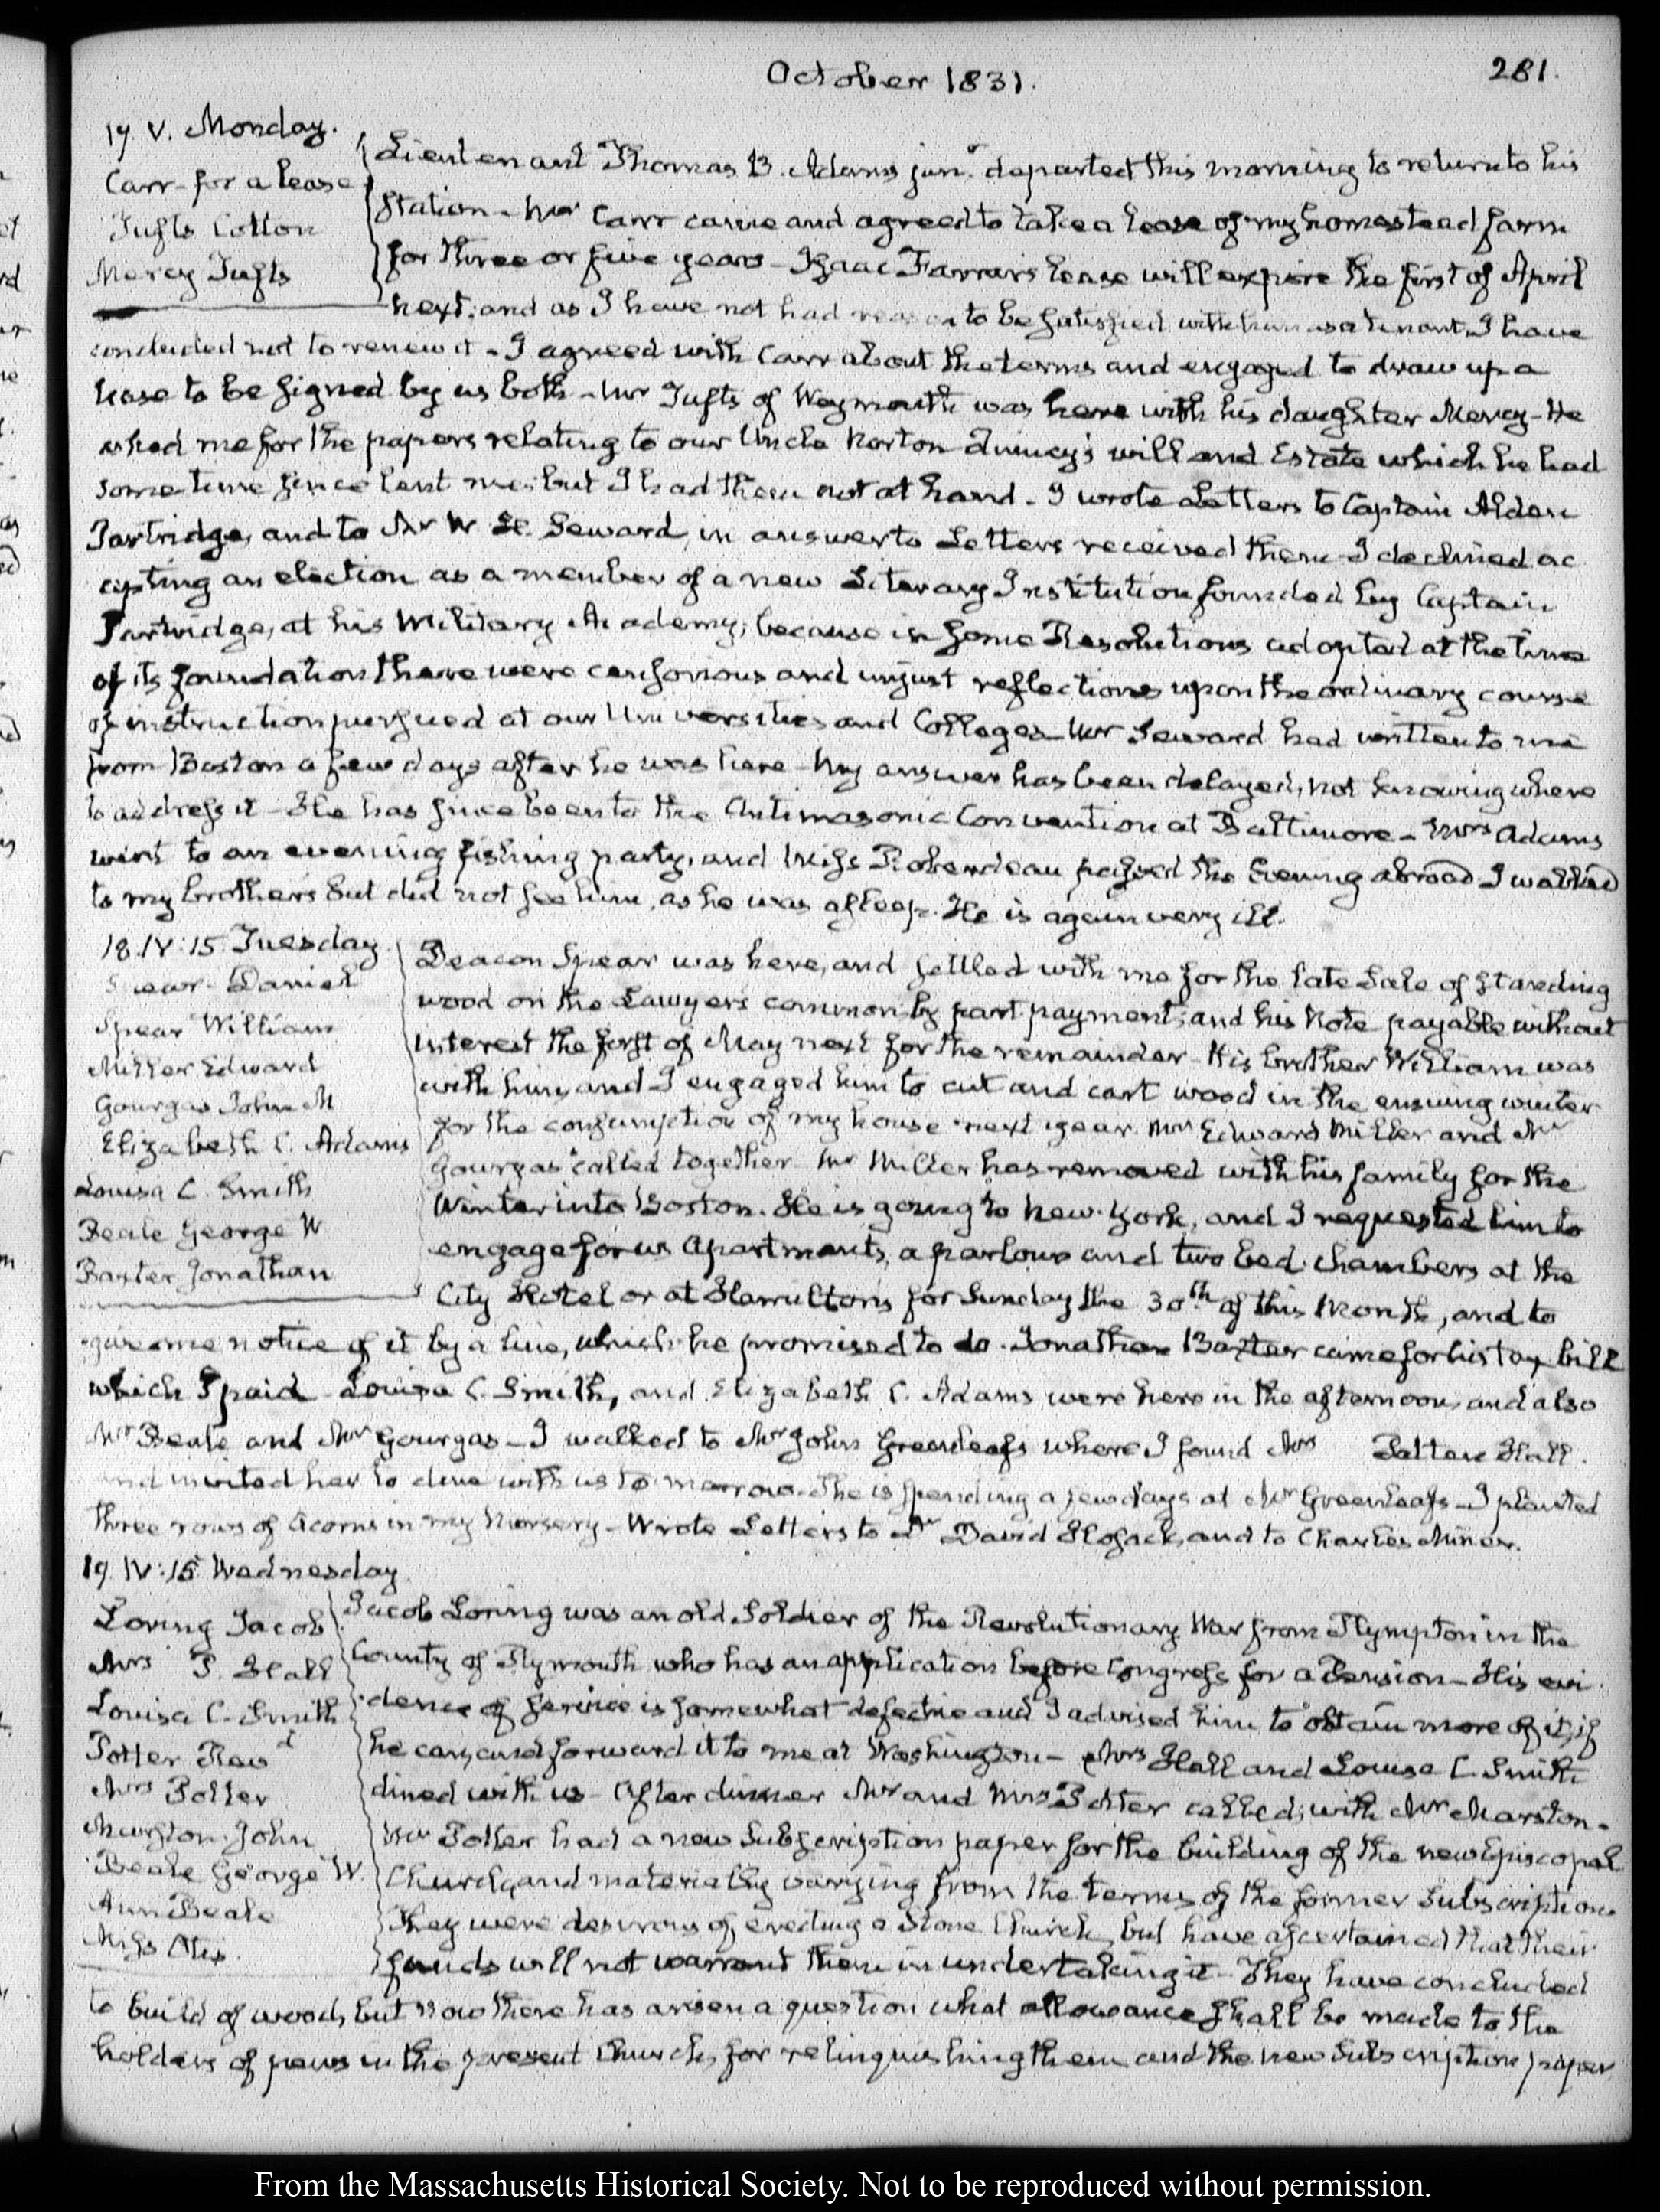 October 1831.
281.
17. V. Monday.
Carr- for a Lease
Tufts Cotton
Mercy Tufts
Lieutenant Thomas B. Adams junr. departed this morning to return to his
Station- Mr Carr came and agreed to take a lease of my homestead farm
for three or five years- Isaac Farrar's lease will expire the first of April
next; and as I have not had reason to be satisfied with him as a tenant, I have
concluded not to renew it- I agreed with Carr about the terms and engaged to draw up a
lease to be signed by us both- Mr Tufts of Weymouth was here with his daughter Mercy- He
asked me for the papers relating to our Uncle Norton Quincy's will and Estate which he had
some time since lent me; but I had them not at hand- I wrote Letters to Captain Alden
Partridge, and to Mr W. H. Seward, in answer to Letters received from them- I declined ac
cepting an election as a member of a new Literary Institution founded by Captain
Partridge, at his Military Academy; because in some Resolutions adopted at the time
of its foundation there were censorious and unjust reflections upon the ordinary course
of instruction pursued at our Universities and Colleges- Mr Seward had written to me
from Boston a few days after he was here- My answer has been delayed, not knowing where
to address it- He has since been to the Antimasonic Convention at Baltimore- Mrs Adams
went to an evening fishing party, and Miss Roberdeau passed the Evening abroad I walked
to my brother's but did not see him, as he was asleep. He is again very ill.
18. IV:15. Tuesday.
Spear- Daniel
Spear William
Miller Edward
Gourgas John M
Elizabeth C. Adams
Louisa C. Smith
Beale George W
Baxter Jonathan
Deacon Spear was here, and settled with me for the late Sale of standing
wood on the Lawyer's common by part payment, and his Note payable without
Interest the first of May next for the remainder- His brother William was
with him, and I engaged him to cut and cart wood in the ensuing winter
for the consumption of my house next year. Mr Edward Miller and Mr
Gourgas called together- Mr Miller has removed with his family for the
Winter into Boston. He is going to New-York, and I requested him to
engage for us Apartments, a parlour and two bed-chambers at the
City Hotel or at Hamilton's for Sunday the 30th of this Month, and to
give me notice of it by a line, which he promised to do. Jonathan Baxter came for his tax bill
which I paid- Louisa C. Smith, and Elizabeth C. Adams were here in the afternoon, and also
Mr Beale and Mr Gourgas- I walked to Mr John Greenleaf's where I found Mrs Patten Hall.
and invited her to dine with us to-morrow. She is spending a few days at Mr Greenleaf's- I planted
three rows of Acorns in my Nursery- Wrote Letters to Dr David Hosack, and to Charles Miner.
19. IV:15. Wednesday
Loring Jacob
Mrs P. Hall
Louisa C. Smith
Potter Revd
Mrs Potter
Marston. John
Beale George W.
Ann Beale
Miss Otis.
Jacob Loring was an old Soldier of the Revolutionary War from Plympton in the
County of Plymouth who has an application before Congress for a Pension- His evi
dence of service is somewhat defective and I advised him to obtain more of it, if
he can, and forward it to me at Washington- Mrs Hall and Louisa C. Smith
dined with us- After dinner Mr and Mrs Potter called; with Mr Marston.
Mr Potter had a new Subscription paper for the building of the new Episcopal
Church, and materially varying from the terms of the former Subscription.
They were desirous of erecting a Stone Church, but have ascertained that their
funds will not warrant them in undertaking it- They have concluded
to build of wood, but now there has arisen a question what allowance shall be made to the
holders of pews in the present Church, for relinquishing them and the new Subscription paper